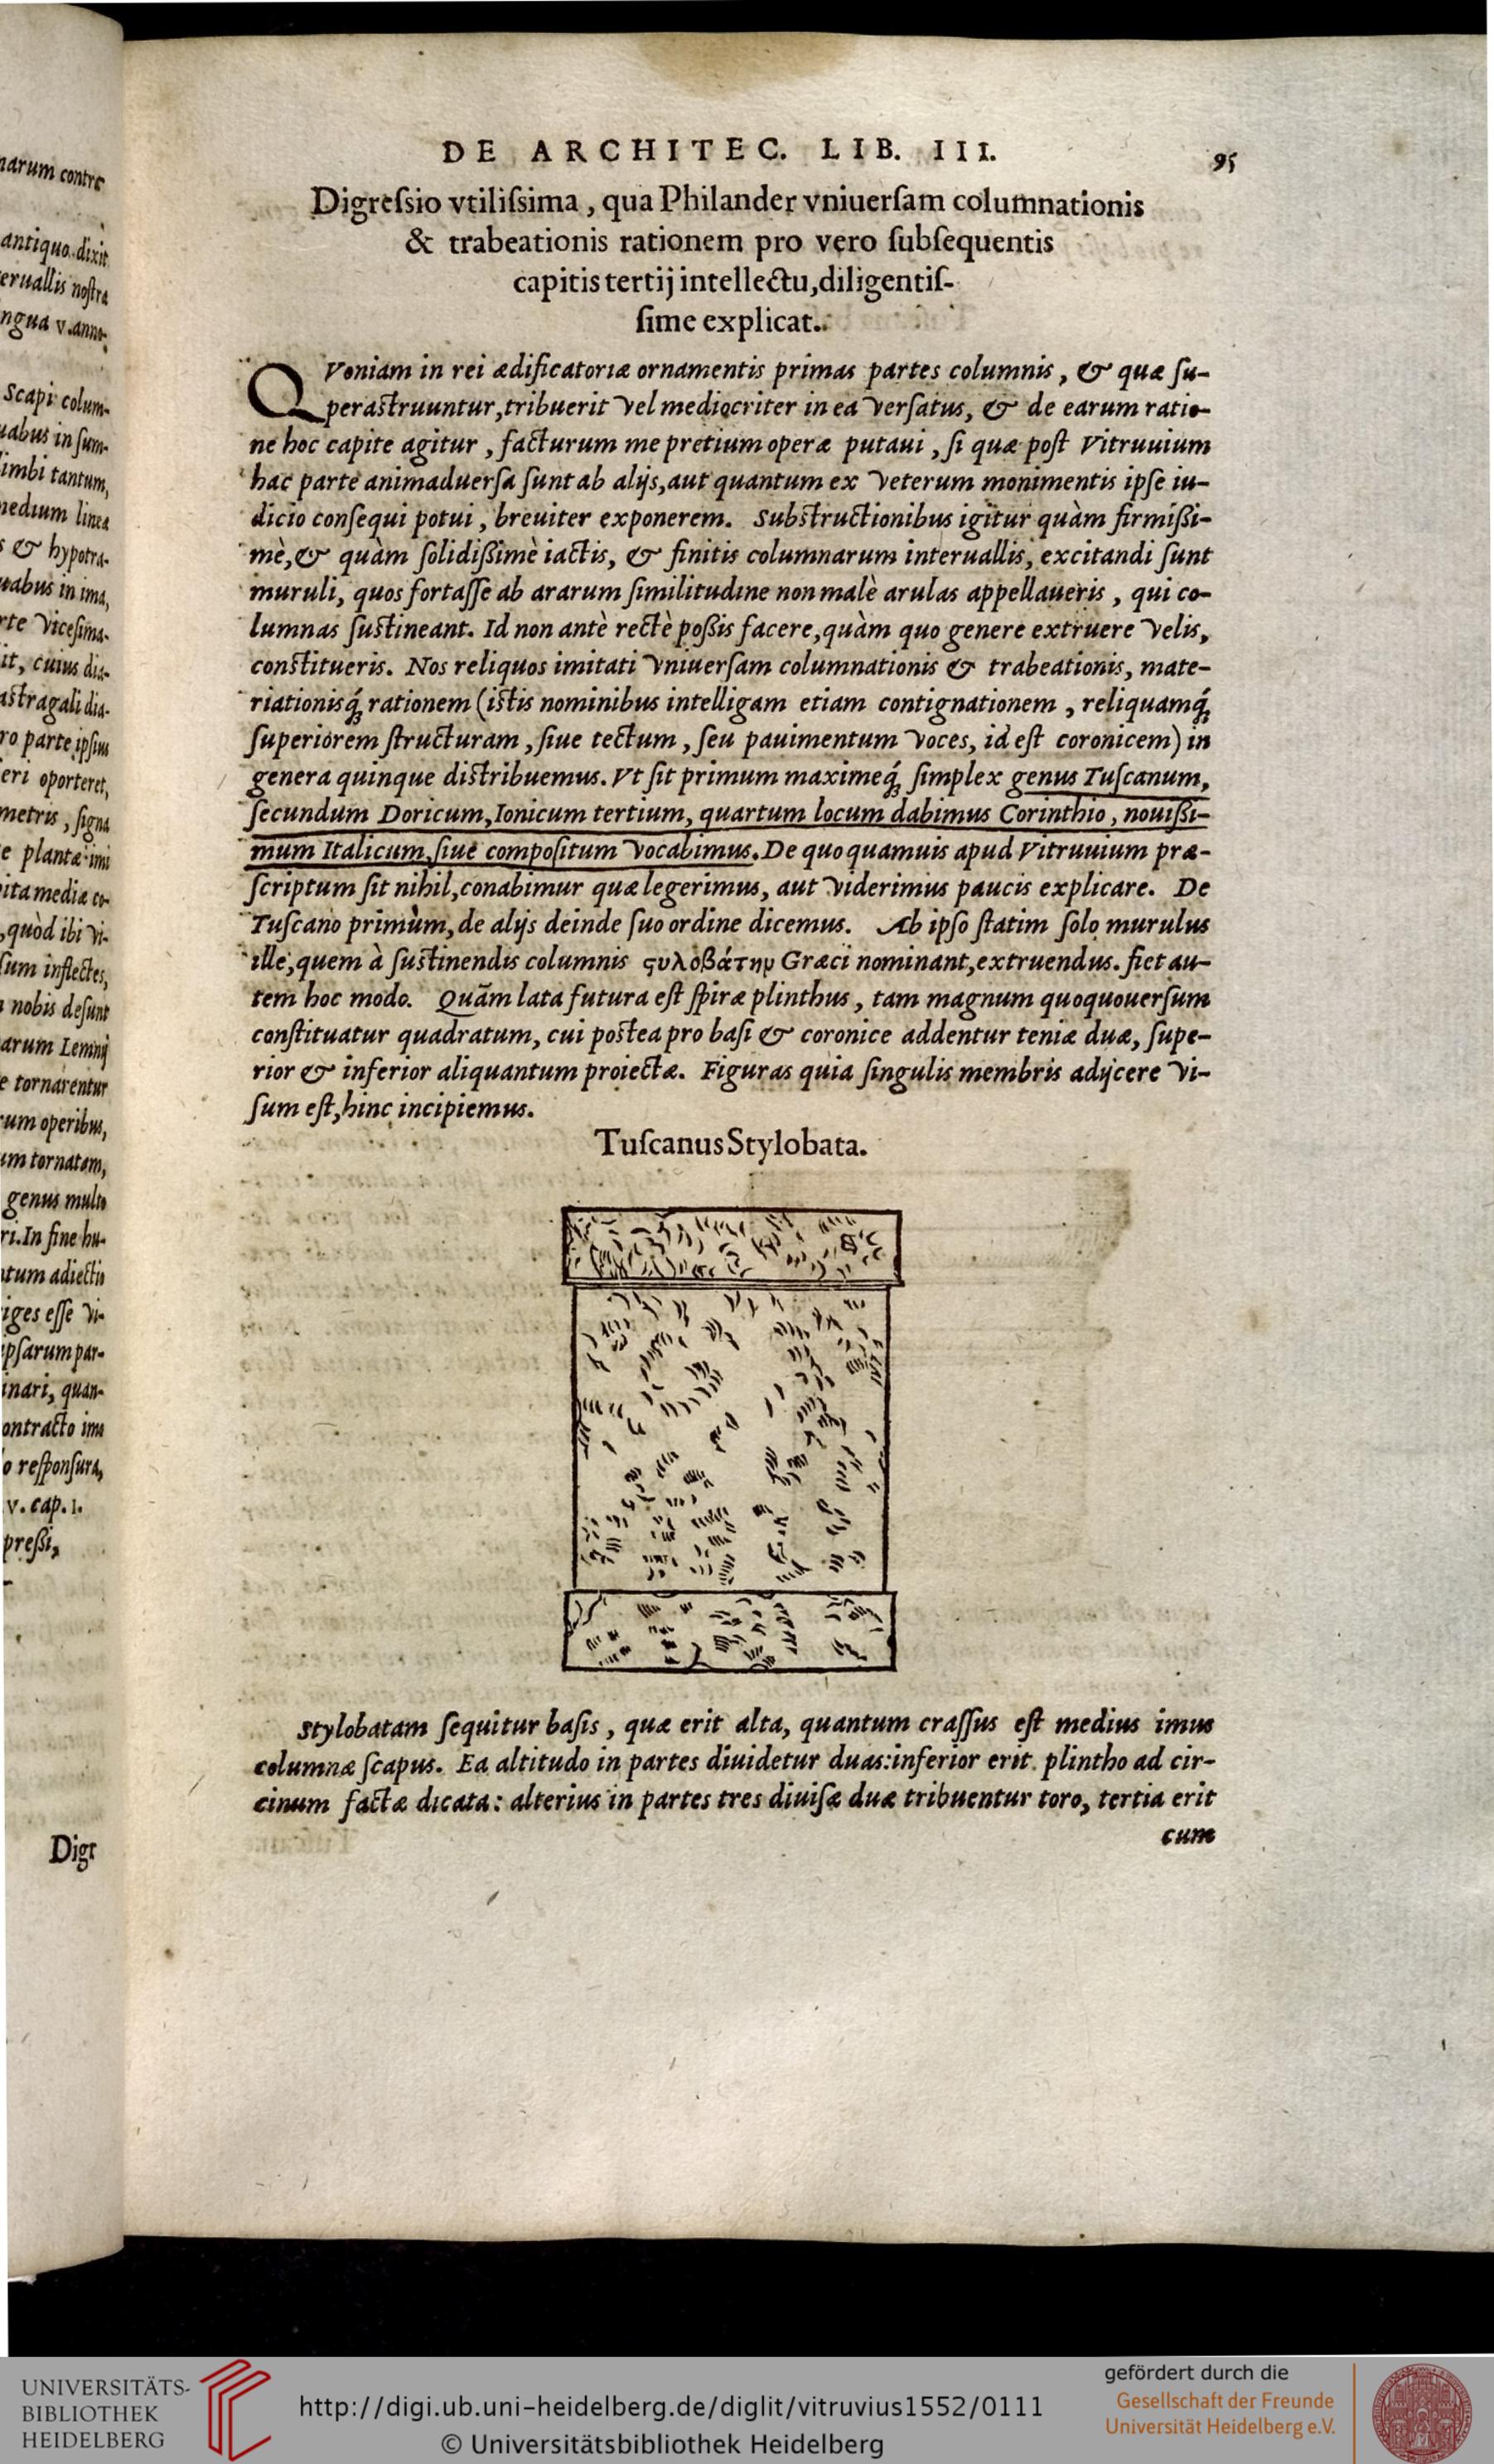 narum contra
antiquo dixit
eruallis nostra
ngua v. anno-
Scapi colum-
uabus in sum-
limbi tantum,
medium linea
s & hypotra-
uabus in ima,
rte vicesima-
it, cuius dia-
astragali dia-
ro parte ipsius
eri oporteret,
metris, signa
e plantæ imi
ita mediæ co-
, quòd ibi vi-
sum inflectes,
nobis desunt
arum Lemnij
e tornarentur
rum operibus,
um tornatam,
genus multo
ri. In fine hu-
tum adiectio
iges esse vi-
psarum par-
inari, quan-
ontracto imo
o responsura,
v. cap. I.
pressi,
Digr
DE ARCHITEC. LIB. III. 95
Digreſsio vtiliſsima, qua Philander vniuerſam columnationis
& trabeationis rationem pro vero ſubſequentis
capitis tertij intellectu, diligentiſ-
ſime explicat.
QVoniam in rei ædificatoriæ ornamentis primas partes columnis, & quæ ſu-
peraſtruuntur, tribuerit vel mediocriter in ea verſatus, & de earum ratio-
ne hoc capite agitur, facturum me pretium operæ putaui, ſi quæ poſt Vitruuium
hac parte animaduerſa ſunt ab alijs, aut quantum ex veterum monimentis ipſe iu-
dicio conſequi potui, breuiter exponerem. Subſtructionibus igitur quàm firmißi-
mè, & quàm ſolidißimè iactis, & finitis columnarum interuallis, excitandi ſunt
muruli, quos fortaſſe ab ararum ſimilitudine non malè arulas appellaueris, qui co-
lumnas ſuſtineant. Id non antè rectè poßis facere, quàm quo genere extruere velis,
conſtitueris. Nos reliquos imitati vniuerſam columnationis & trabeationis, mate-
riationisq́; rationem (iſtis nominibus intelligam etiam contignationem, reliquamq́;
ſuperiorem ſtructuram, ſiue tectum, ſeu pauimentum voces, id eſt coronicem) in
genera quinque diſtribuemus. Vt ſit primum maximeq́; ſimplex genus Tuſcanum,
ſecundum Doricum, Ionicum tertium, quartum locum dabimus Corinthio, nouißi-
mum Italicum, ſiue compoſitum vocabimus. De quo quamuis apud Vitruuium præ-
ſcriptum ſit nihil, conabimur quæ legerimus, aut viderimus paucis explicare. De
Tuſcano primùm, de alijs deinde ſuo ordine dicemus. Ab ipſo ſtatim ſolo murulus
ille, quem à ſuſtinendis columnis ϛυλοβάτην Græci nominant, extruendus. fiet au-
tem hoc modo. Quãm lata futura eſt ſpiræ plinthus, tam magnum quoquouerſum
conſtituatur quadratum, cui poſtea pro baſi & coronice addentur teniæ duæ, ſupe-
rior & inferior aliquantum proiectæ. Figuras quia ſingulis membris adijcere vi-
ſum eſt, hinc incipiemus.
Tuſcanus Stylobata.
Stylobatam ſequitur baſis, quæ erit alta, quantum craſſus eſt medius imus
columnæ ſcapus. Ea altitudo in partes diuidetur duas: inferior erit plintho ad cir-
cinum factæ dicata: alterius in partes tres diuiſæ duæ tribuentur toro, tertia erit
cum
UNIVERSITÄTS-
BIBLIOTHEK
HEIDELBERG
http://digi.ub.uni-heidelberg.de/diglit/vitruvius1552/0111
© Universitätsbibliothek Heidelberg
gefördert durch die
Gesellschaft der Freunde
Universität Heidelberg e.V.